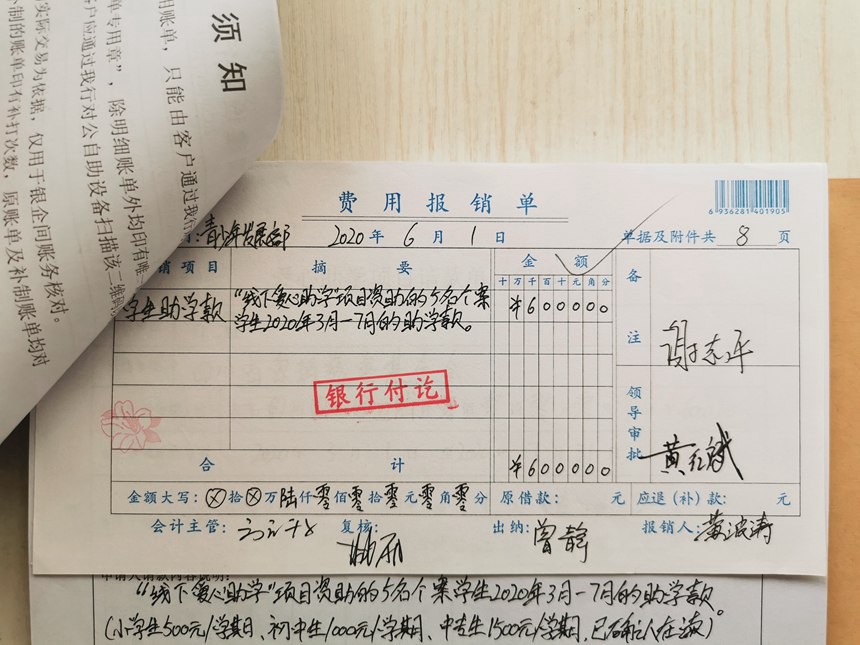 须知
用账单，只能由客户通过我行
单专用章”，除明细账单外均印有唯一
客户应通过我行对公自助设备扫描该二维码
实际交易为依据，仅用于银企间账务核对。
补制的账单印有补打次数，原账单及补制账单均对
费用报销单
6 936281 401905
青少年发展部 2020年6月1日 单据及附件共8页
项目 摘要 金额 备注
十万千百十元角分
学生助学款 “线下爱心助学”项目资助的5名个案 ¥600000
学生2020年3月-7月的助学款。
谢志平
银行付讫
领导审批 黄红斌
合计 ¥600000
金额大写：ⓧ拾ⓧ万陆仟零佰零拾零元零角零分 原借款： 元 应退（补）款： 元
会计主管： 复核： 出纳：曾静 报销人：黄波涛
申请人请款内容说明：
“线下爱心助学”项目资助的5名个案学生2020年3月-7月的助学款
（小学生500元/学期、初中生1000元/学期、中专生1500元/学期，已确认人在读）。